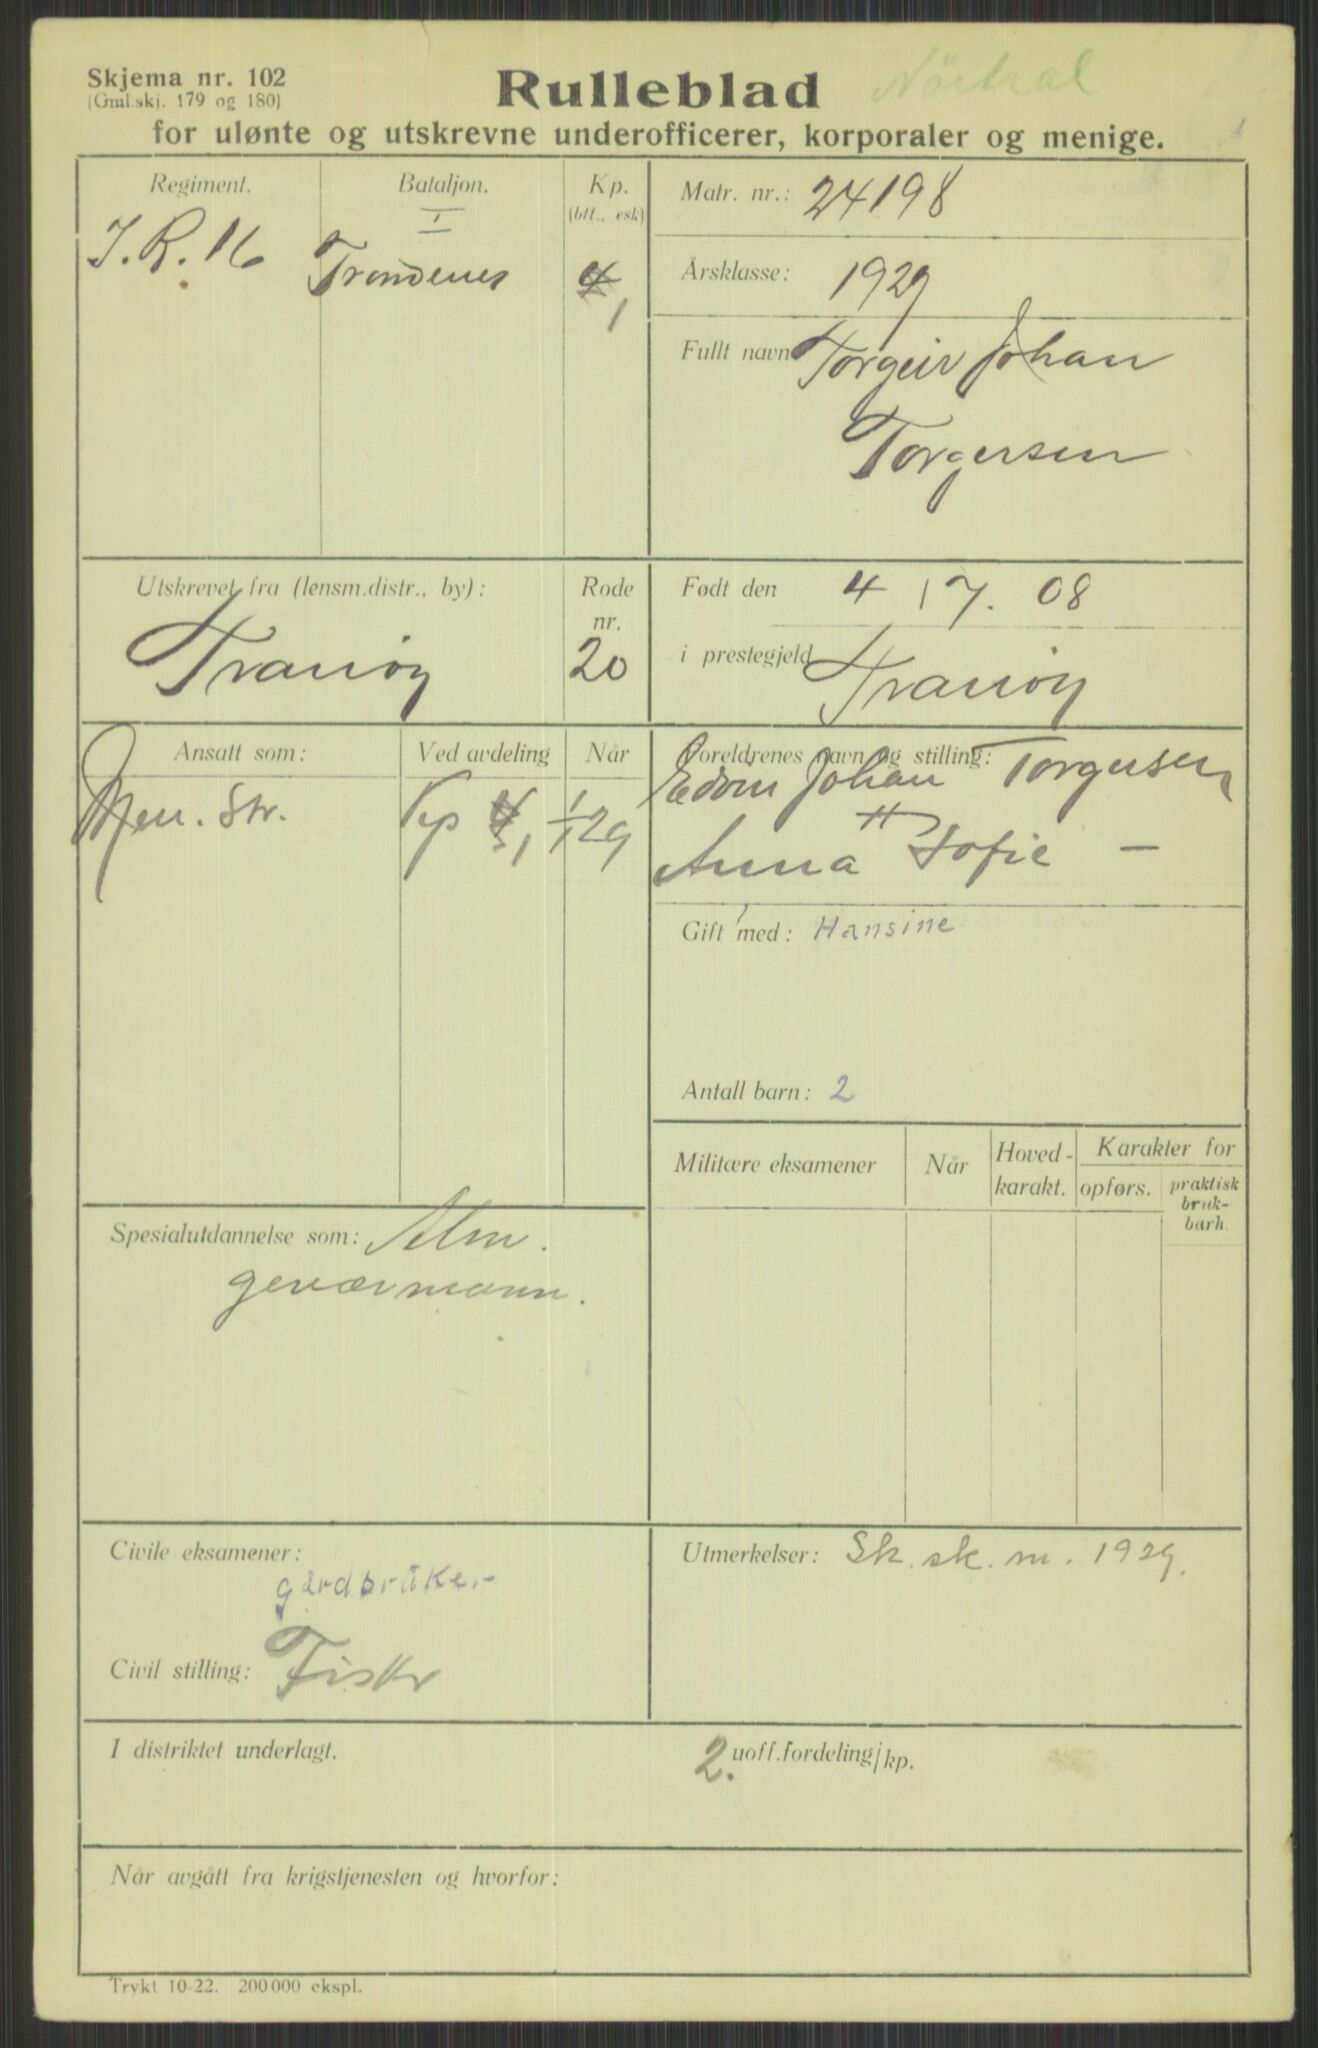 Skjema nr. 102
(Gml. skj. 179 og 180)
Rulleblad
for ulønte og utskrevne underofficerer, korporaler og menige.
Regiment.
I.R. 16
Bataljon.
I
Trondenes
Kp.
(btt., esk)
4
1
Matr. nr.: 24198
Årsklasse: 1929
Fullt navn Torgeir Johan
Torgersen
Utskrevet fra (lensm.distr., by):
Tranöy
Rode
nr.
20
Født den 4 / 7. 08
i prestegjeld Tranöy
Ansatt som:
Men. Str.
Ved avdeling
Kp 4, 1
Når
1/1 29
Foreldrenes navn og stilling:
Edvin Johan Torgersen
Anna Sofie —
Gift med: Hansine
Antall barn: 2
Militære eksamener
Når
Hoved-
karakt.
Karakter for
opførs.
praktisk
bruk-
barh.
Spesialutdannelse som: Alm.
geværmann.
Civile eksamener:
gårdbruker
Civil stilling: Fisker
Utmerkelser: Sk. sk. m. 1929.
I distriktet underlagt.
2. uoff.fordeling/kp.
Når avgått fra krigstjenesten og hvorfor:
Trykt 10-22. 200 000 ekspl.